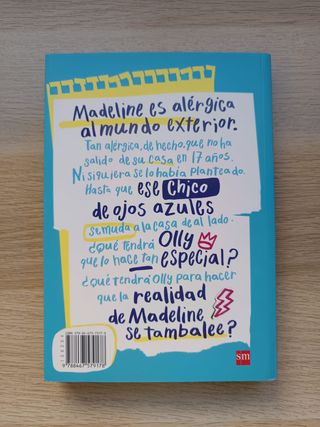 Madeline es alérgica
al mundo exterior.
Tan alérgica, de hecho, que no ha
salido de su casa en 17 años.
Ni siquiera se lo había planteado.
Hasta que ese chico
de ojos azules
se muda a la casa de al lado.
¿Qué tendrá Olly
que lo hace tan especial?
¿Qué tendrá Olly para hacer
que la realidad
de Madeline
se tambalee?
9 788467 579178
sm